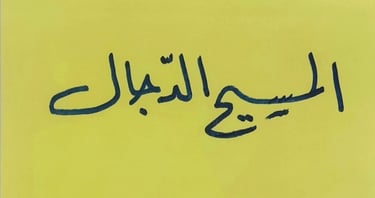 المسيح الدّجال